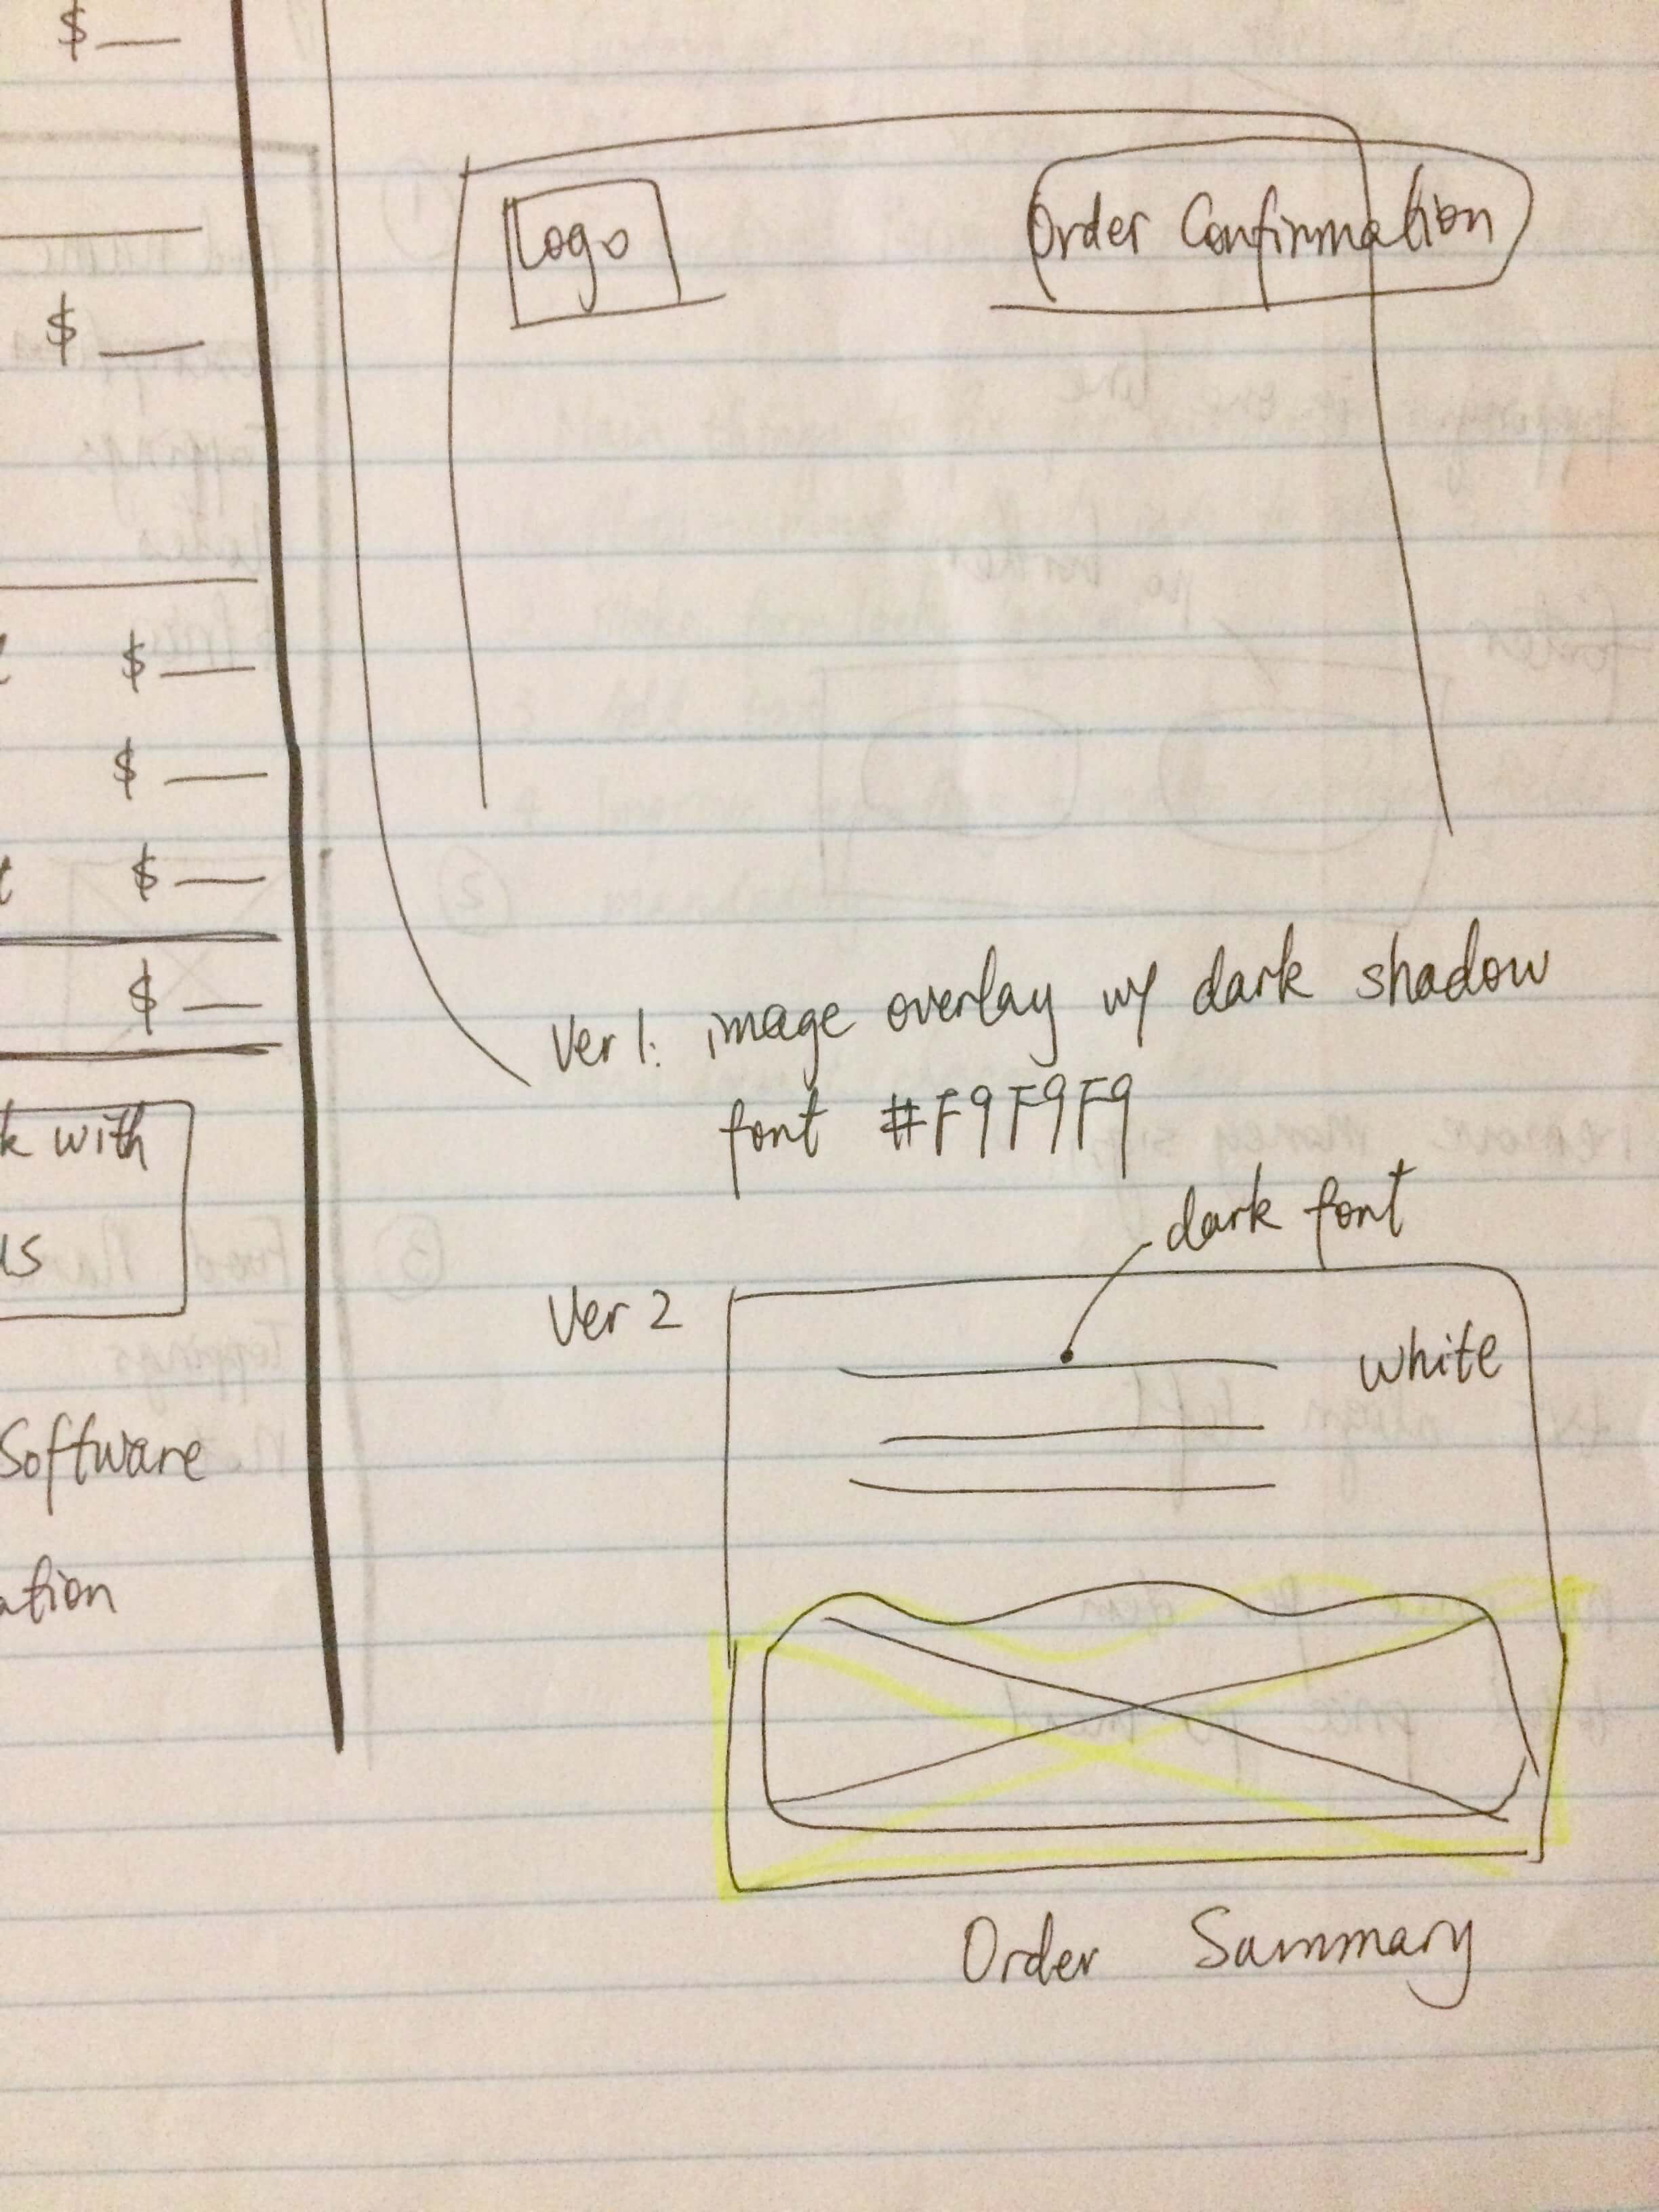 $
$
$
$
$
$
k with
us
Software
ation
Logo
Order Confirmation
Ver 1: image overlay w/ dark shadow
font #F9F9F9
dark font
Ver 2
white
Order Summary